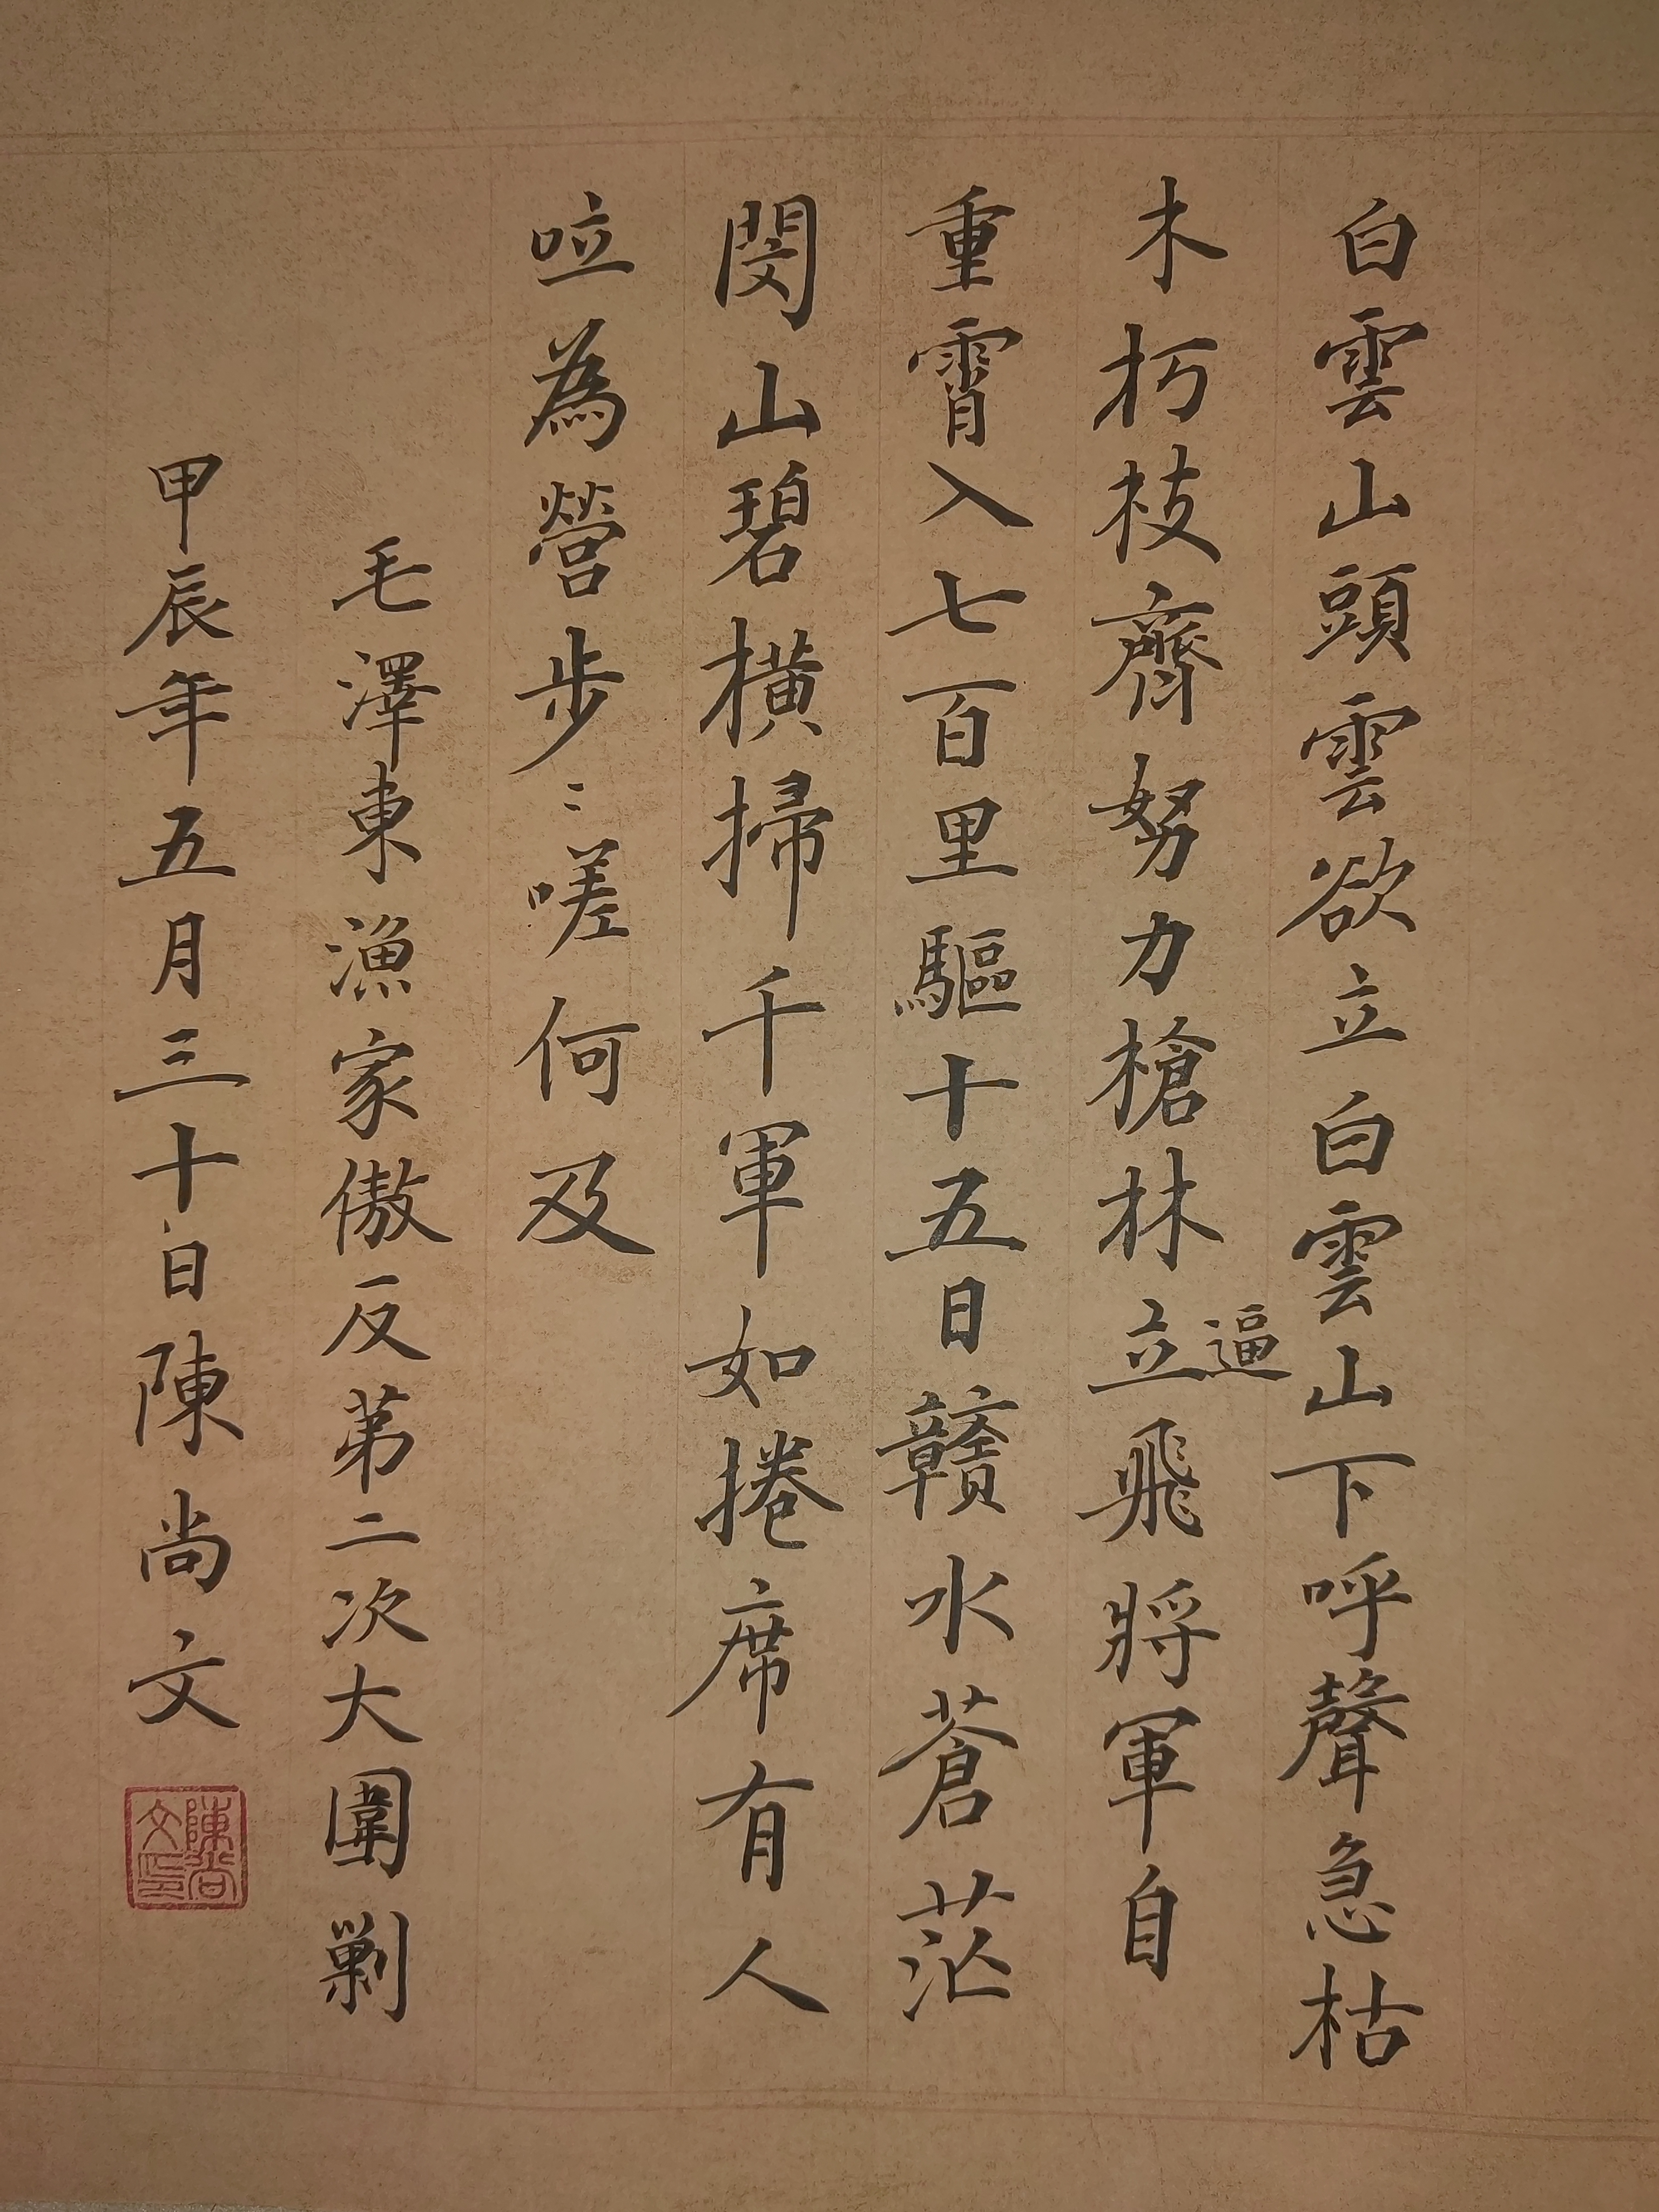 白雲山頭雲欲立白雲山下呼聲急枯
木朽枝齊努力槍林立逼飛將軍自
重霄入七百里驅十五日赣水蒼茫
閔山碧橫掃千軍如捲席有人
泣為營步〻嗟何及
毛澤東漁家傲反第二次大圍剿
甲辰年五月三十日陳尚文
陳尚文印